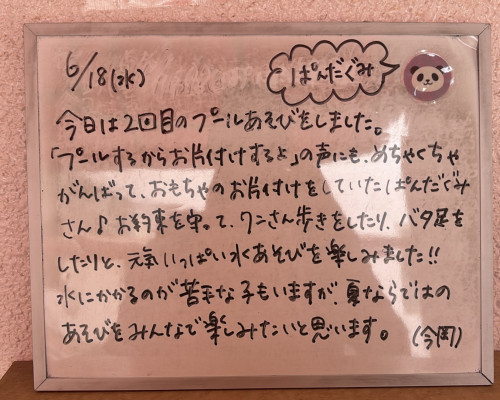 6/18(水)
ぱんだぐみ
今日は2回目のプールあそびをしました。
「プールするからお片付けするよ」の声にも、めちゃくちゃ
がんばって、おもちゃのお片付けをしていたぱんだぐみ
さん♪お約束を守って、ワニさん歩きをしたり、バタ足を
したりと、元気いっぱい水あそびを楽しみました!!
水にかかるのが苦手な子もいますが、夏ならではの
あそびをみんなで楽しみたいと思います。 (今岡)